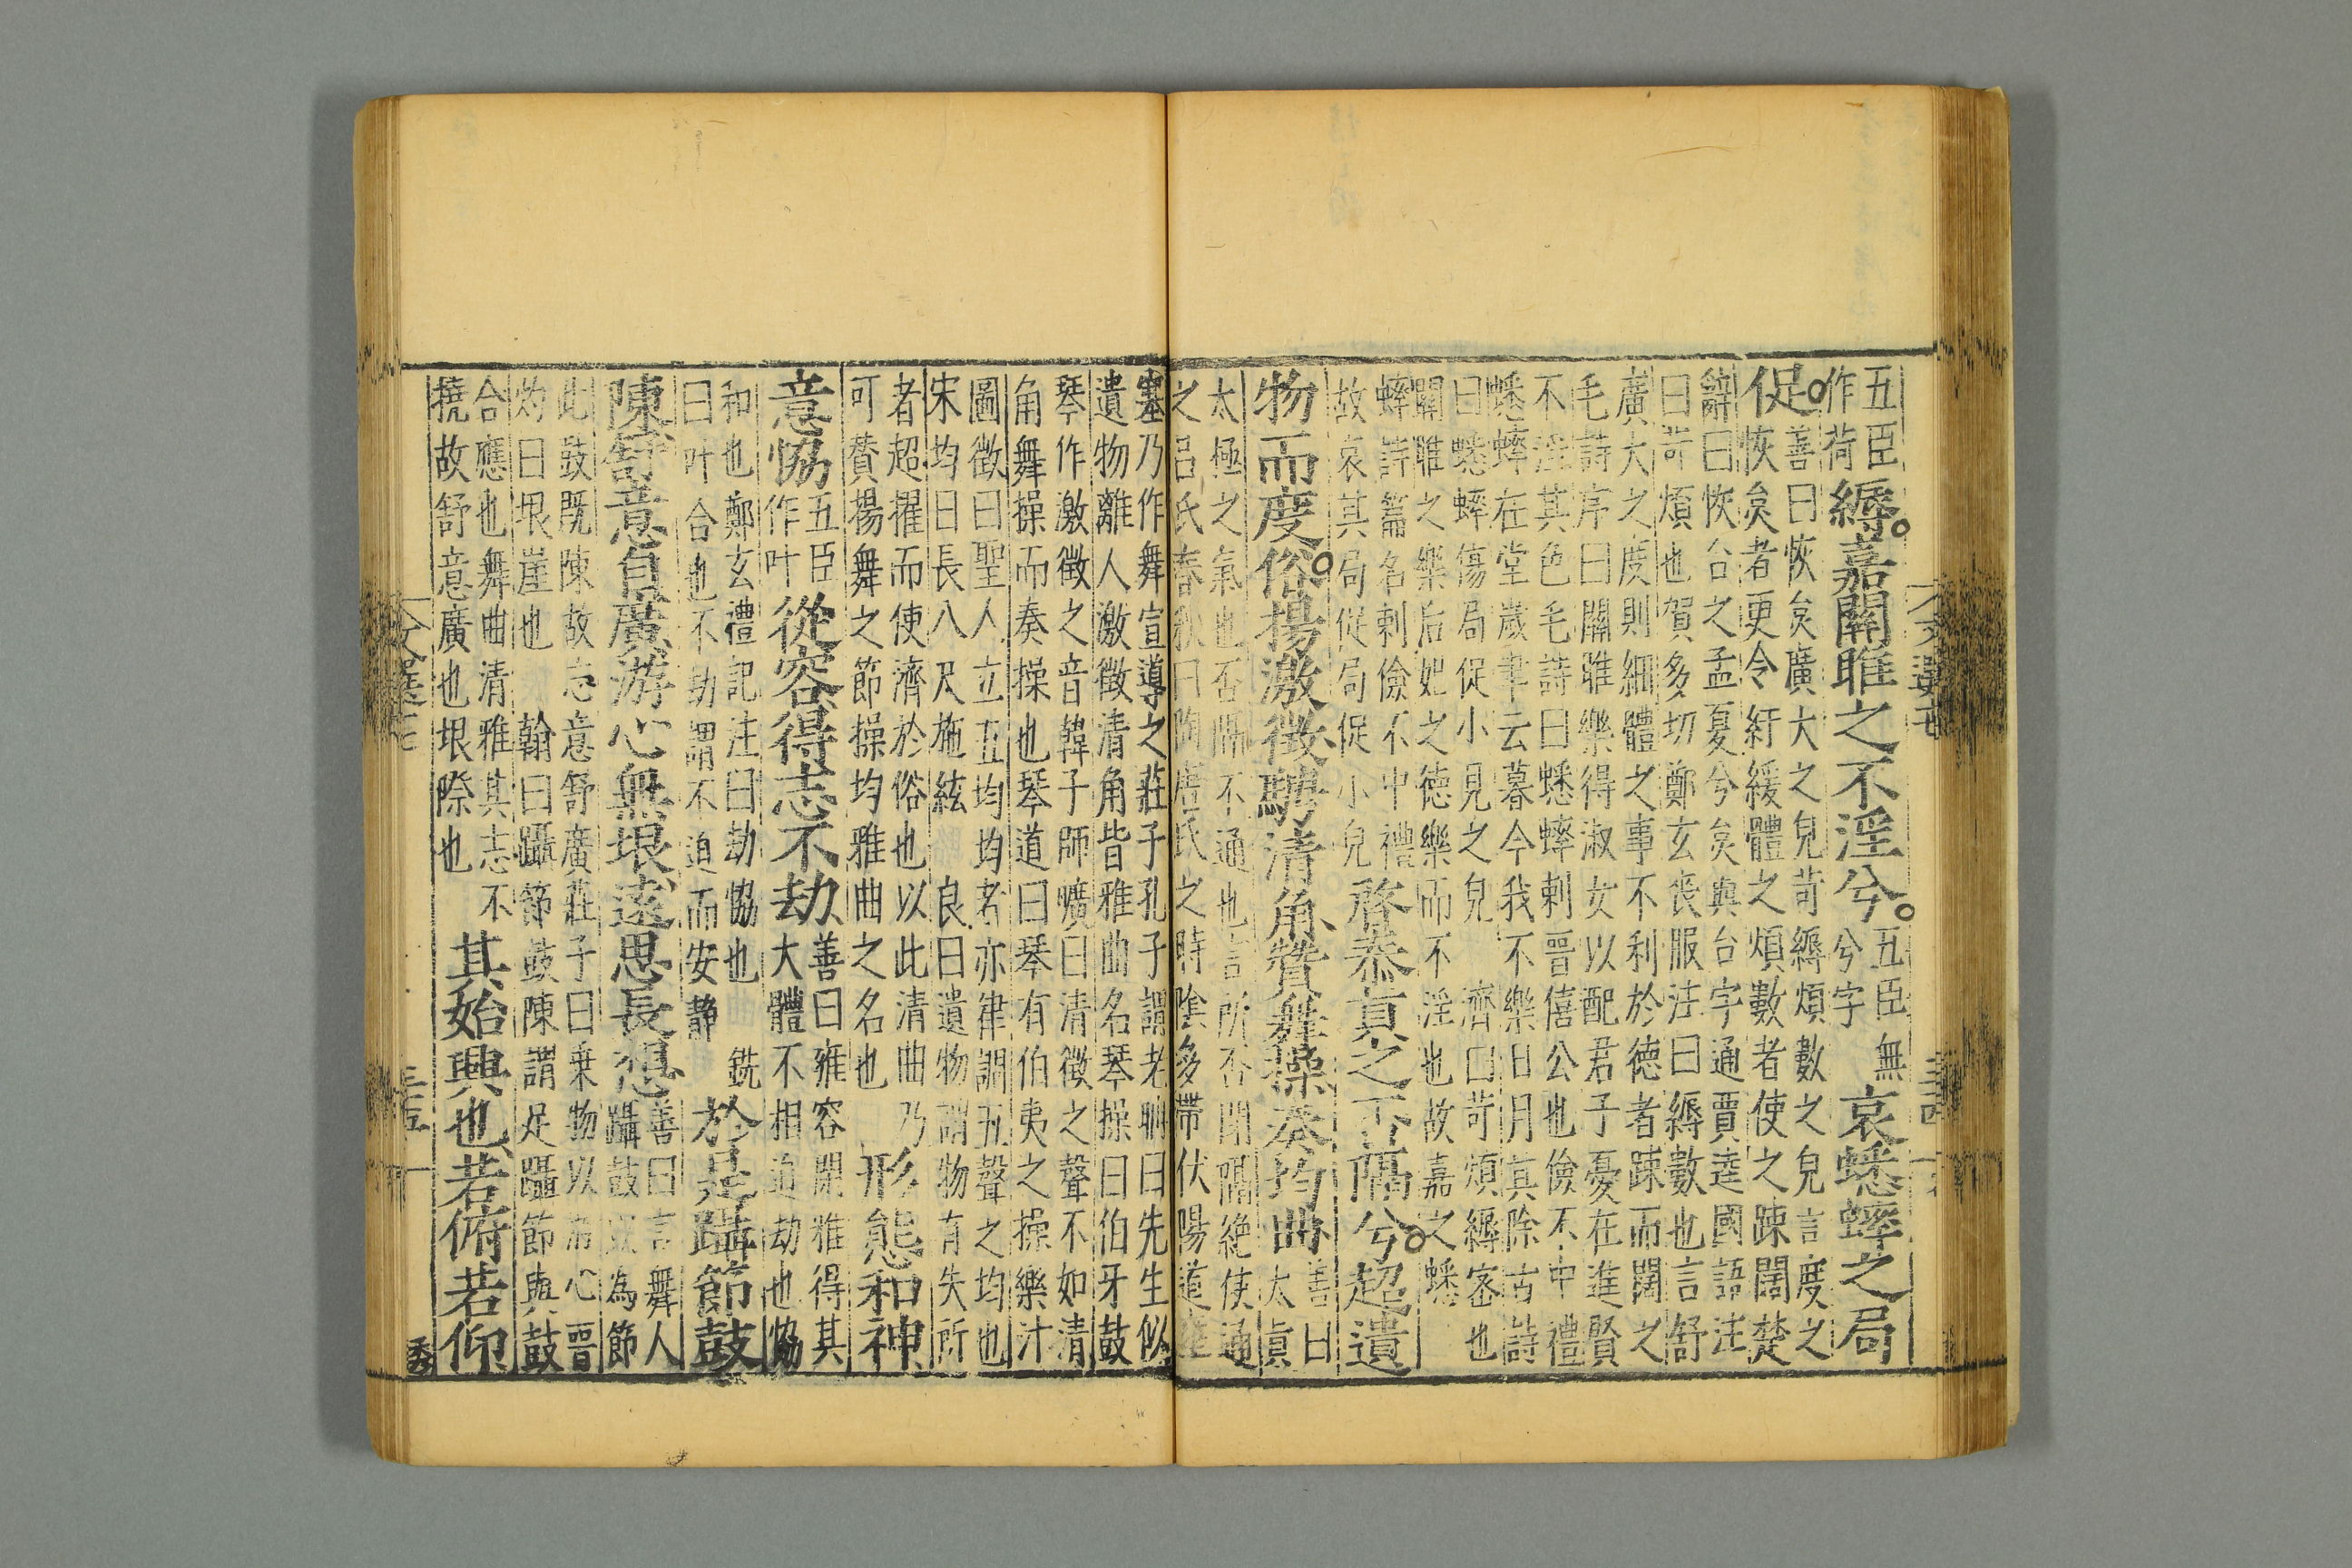 五臣
作荷
縟嘉關雎之不淫兮
五臣無
兮字
哀蟋蟀之局
促
善曰恢炱廣大之皃苛縟煩數之皃言度之
恢炱者更令紆緩體之煩數者使之踈闊楚
辭曰恢台之孟夏兮炱與台字通賈逵國語注
曰苛煩也賀多切鄭玄喪服注曰縟數也言舒
廣大之度則細體之事不利於德者踈而闊之
毛詩序曰關雎樂得淑女以配君子憂在進賢
不淫其色毛詩曰蟋蟀刺晉僖公也儉不中禮
蟋蟀在堂歲聿云暮今我不樂日月其除古詩
曰蟋蟀傷局促小見之皃 濟曰苛煩縟宻也
關雎之樂后妃之德樂而不淫也故嘉之蟋
蟀詩篇名刺儉不中禮
故哀其局促局促小皃
啓恭真之否隔兮超遺
物而度俗揚激徵騁清角贊舞操奏均曲
善曰
太眞
太極之氣也否隔不通也言所否閉隔絶使通
之呂氏春秋曰陶唐氏之時陰多帶伏陽道壅
塞乃作舞宣導之莊子孔子謂老聃曰先生似
遺物離人激徵清角皆雅曲名琴操曰伯牙鼓
琴作激徵之音韓子師曠曰清徵之聲不如清
角舞操而奏操也琴道曰琴有伯夷之操樂汁
圖徵曰聖人立五均均者亦律調五聲之均也
宋均曰長八尺施絃 良曰遺物謂物有失所
者超擢而使濟於俗也以此清曲乃
可贊揚舞之節操均雅曲之名也
形態和神
意恊
五臣
作叶
從容得志不劫
善曰雍容閑雅得其
大體不相迫劫也恊
和也鄭玄禮記注曰劫恊也 銑
曰叶合也不劫謂不迫而安静
於是躡節鼓
陳舒意自廣游心無垠遠思長想
善曰言舞人
躡鼓以為節
此鼓既陳故志意舒廣莊子曰乗物以游心晉
灼曰垠崖也 翰曰躡節鼓陳謂足躡節與鼓
合應也舞曲清雅其志不
撓故舒意廣也垠際也
其始興也若俯若仰
文選十七
三十四
文選十七
三十五